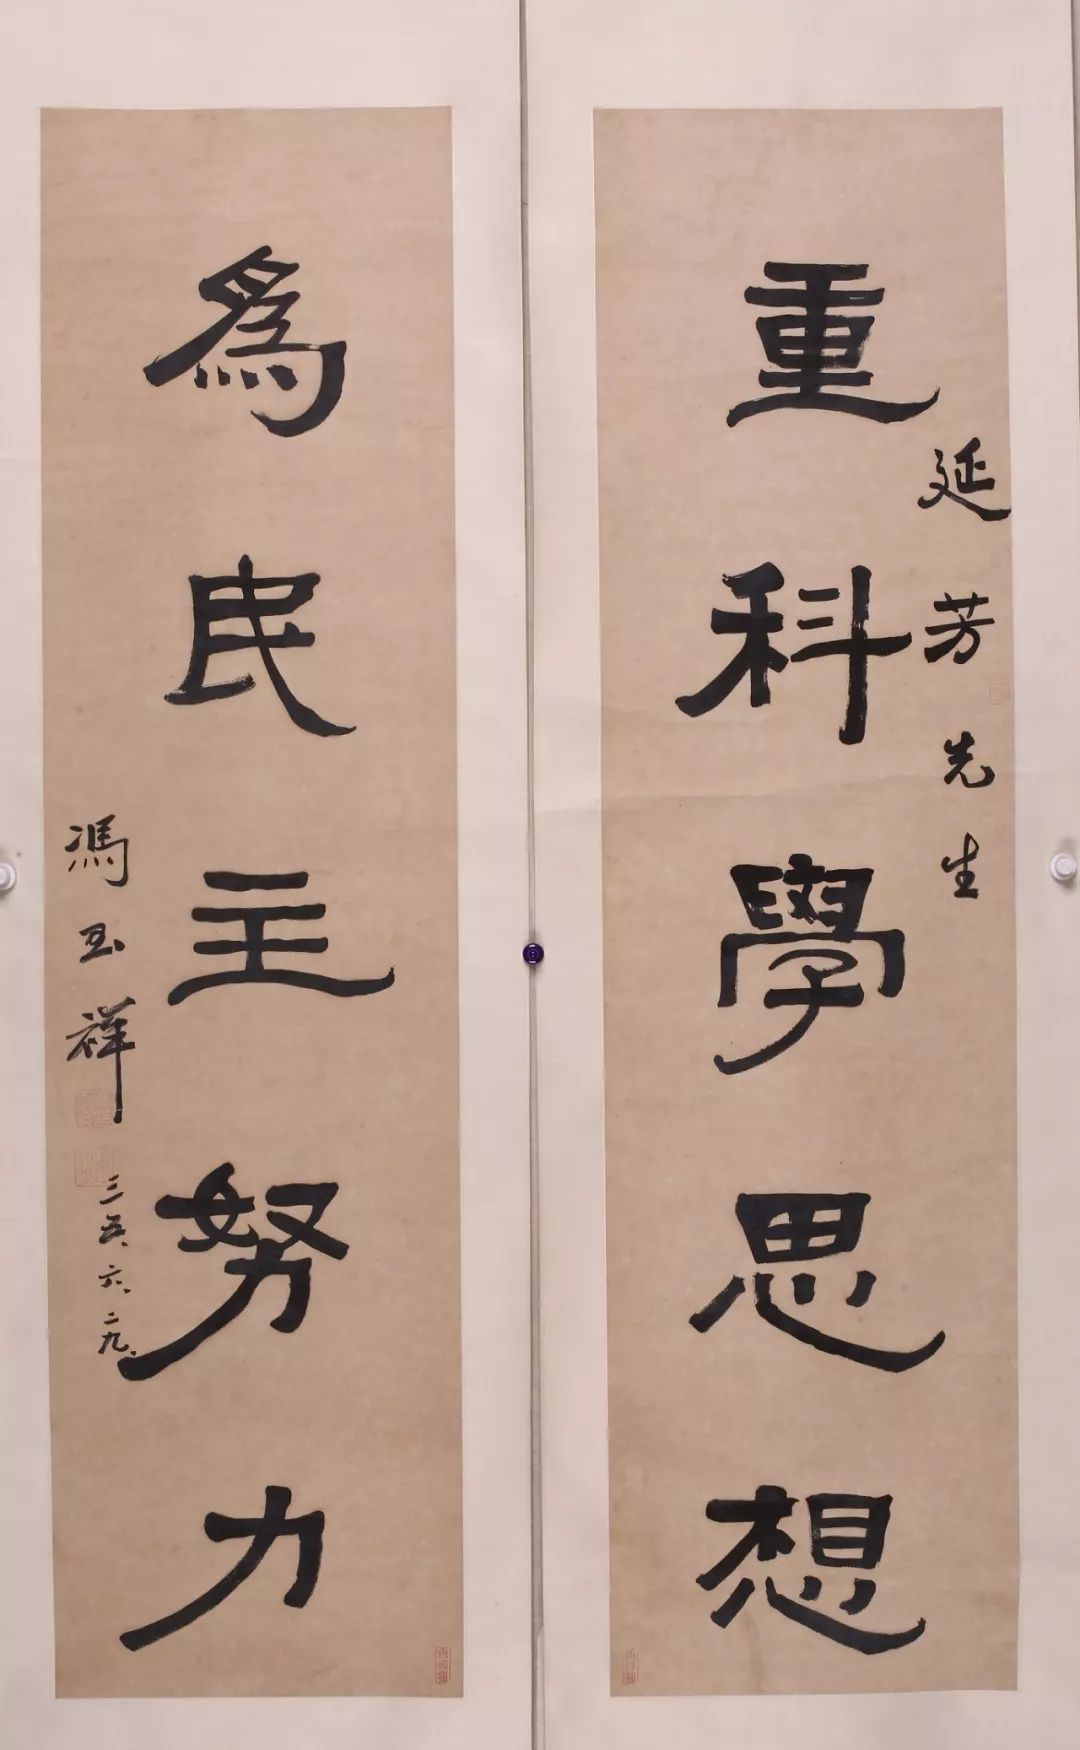 延芳先生
重科學思想
為民主努力
馮玉祥
三五、六、二九、